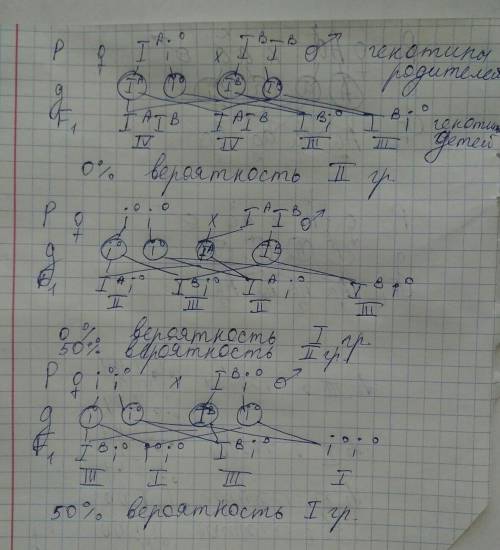 P ♀ Iᴬi⁰ x IᴮIᴮ ♂ генотипы родителей
g Iᴬ i⁰ Iᴮ Iᴮ
F₁ IᴬIᴮ IᴬIᴮ Iᴮi⁰ Iᴮi⁰ генотипы детей
IV IV III III
0% вероятность II гр.
P ♀ i⁰i⁰ x IᴬIᴮ ♂
g i⁰ i⁰ Iᴬ Iᴮ
F₁ Iᴬi⁰ Iᴮi⁰ Iᴬi⁰ Iᴮi⁰
II III II III
0% вероятность I гр.
50% вероятность II гр.
P ♀ i⁰i⁰ x Iᴮi⁰ ♂
g i⁰ i⁰ Iᴮ i⁰
F₁ Iᴮi⁰ i⁰i⁰ Iᴮi⁰ i⁰i⁰
III I III I
50% вероятность I гр.